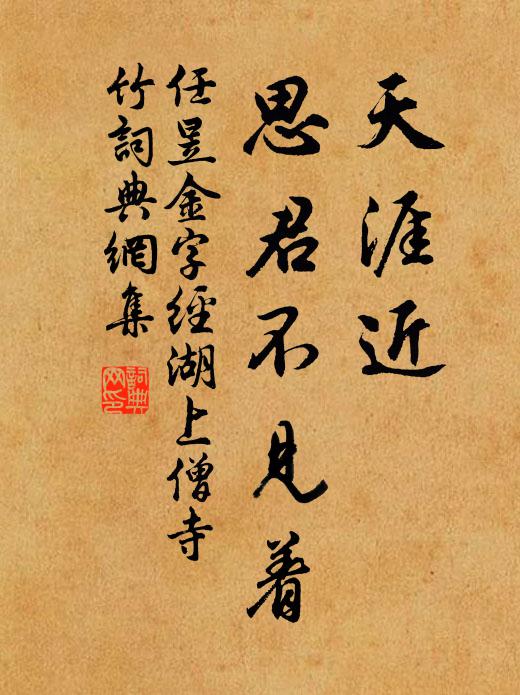 天涯近
思君不见着
任昱金字經湖上僧寺
竹詞典網集
詞典网印